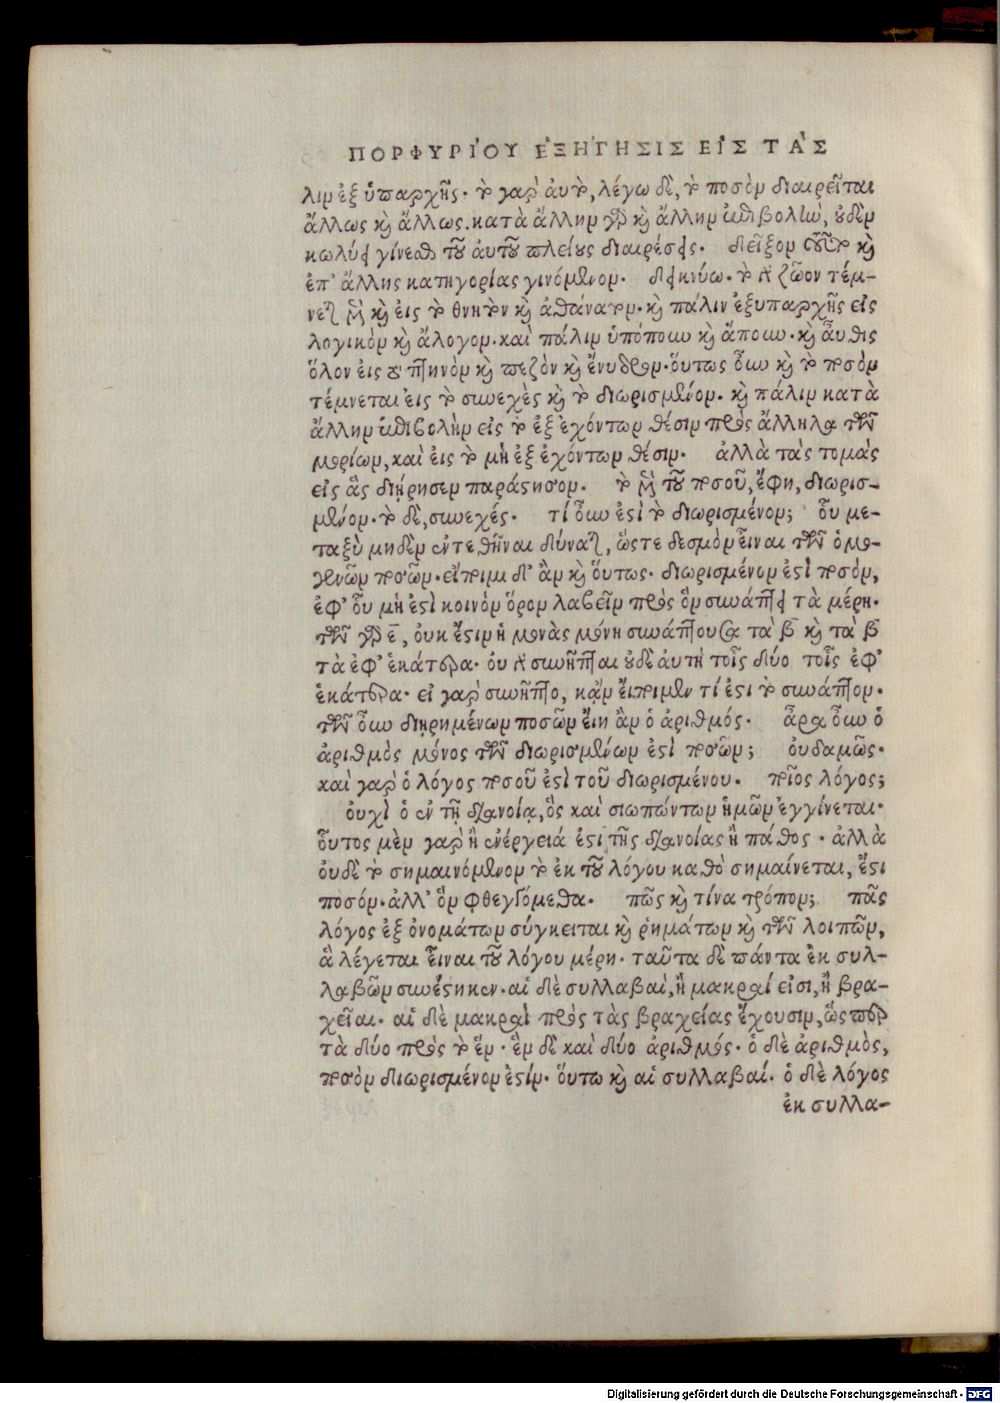 ΠΟΡΦΥΡΙ'ΟΥ ἘΞΗ'ΓΗΣΙΣ ΕἸΣ ΤᾺΣ
λιν ἐξ ὑπαρχῆς· τὸ γὰρ αὐτὸ, λέγω δὲ, τὸ ποσὸν διαιρεῖται
ἄλλως κὶ ἄλλως. κατὰ ἄλλην γὰρ κὶ ἄλλην ἐπιβολὴν, οὐδὲν
κωλύει γίνεσθαι τοῦ αὐτοῦ πλείους διαιρέσεις. δεῖξον τοῦτο κὶ
ἐπ' ἄλλης κατηγορίας γινόμενον. δεικνύω. τὸ γὰρ ζῶον τέμ-
νεται μὲν κὶ εἰς τὸ θνητὸν κὶ ἀθάνατον. κὶ πάλιν ἐξυπαρχῆς εἰς
λογικὸν κὶ ἄλογον. καὶ πάλιν ὑπόπουν κὶ ἄπουν. κὶ αὖθις
ὅλον εἰς τὸ πτηνὸν κὶ πεζὸν κὶ ἔνυδρον. οὕτως οὖν κὶ τὸ ποσὸν
τέμνεται εἰς τὸ συνεχὲς κὶ τὸ διωρισμένον. κὶ πάλιν κατὰ
ἄλλην ἐπιβολὴν εἰς τὸ ἐξ ἐχόντων θέσιν πρὸς ἄλληλα τῶν
μορίων, καὶ εἰς τὸ μὴ ἐξ ἐχόντων θέσιν. ἀλλὰ τὰς τομὰς
εἰς ἃς διῄρησεν παράστησον. τὸ μὲν τοῦ ποσοῦ, ἔφη, διωρισ-
μένον. τὸ δὲ, συνεχές. τί οὖν ἐστὶ τὸ διωρισμένον; οὗ με-
ταξὺ μηδὲν ἐντεθῆναι δύναται, ὥστε δεσμὸν εἶναι τῶν ὁμο-
γενῶν ποσῶν. εἴποιμι δ' ἂν κὶ οὕτως. διωρισμένον ἐστὶ ποσὸν,
ἐφ' οὗ μὴ ἐστὶ κοινὸν ὅρον λαβεῖν πρὸς ὃν συνάπτει τὰ μέρη.
τῶν γὰρ ε̄, οὐκ ἔστιν ἡ μονὰς μόνη συνάπτουσα τὰ β̄ κὶ τὰ β̄
τὰ ἐφ' ἑκάτερα. οὐ γὰρ συνῆπται οὐδὲ αὐτὴ τοῖς δύο τοῖς ἐφ'
ἑκάτερα. εἰ γὰρ συνῆπτο, κἂν εἴποιμεν τί ἐστι τὸ συνάπτον.
τῶν οὖν διῃρημένων ποσῶν εἴη ἂν ὁ ἀριθμός. ἆρα οὖν ὁ
ἀριθμὸς μόνος τῶν διωρισμένων ἐστὶ ποσῶν; οὐδαμῶς.
καὶ γὰρ ὁ λόγος ποσοῦ ἐστὶ τοῦ διωρισμένου. ποῖος λόγος;
οὐχὶ ὁ ἐν τῇ διανοίᾳ, ὃς καὶ σιωπώντων ἡμῶν ἐγγίνεται.
οὗτος μὲν γὰρ ἢ ἐνέργειά ἐστι τῆς διανοίας ἢ πάθος. ἀλλὰ
οὐδὲ τὸ σημαινόμενον τὸ ἐκ τοῦ λόγου καθὸ σημαίνεται, ἔστι
ποσόν. ἀλλ' ὃν φθεγγόμεθα. πῶς κὶ τίνα τρόπον; πᾶς
λόγος ἐξ ὀνομάτων σύγκειται κὶ ῥημάτων κὶ τῶν λοιπῶν,
ἃ λέγεται εἶναι τοῦ λόγου μέρη. ταῦτα δὲ πάντα ἐκ συλ-
λαβῶν συνέστηκεν. αἱ δὲ συλλαβαὶ, ἢ μακραί εἰσι, ἢ βρα-
χεῖαι. αἱ δὲ μακραὶ πρὸς τὰς βραχείας ἔχουσιν, ὥσπερ
τὰ δύο πρὸς τὸ ἕν. ἓν δὲ καὶ δύο ἀριθμός. ὁ δὲ ἀριθμὸς,
ποσὸν διωρισμένον ἐστίν. οὕτω κὶ αἱ συλλαβαί. ὁ δὲ λόγος
ἐκ συλλα-
Digitalisierung gefördert durch die Deutsche Forschungsgemeinschaft - DFG